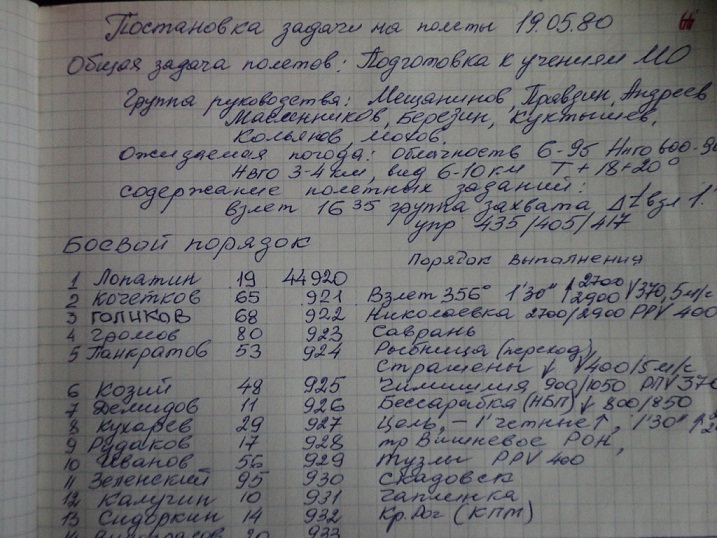 Постановка задачи на полеты 19.05.80
Общая задача полетов: Подготовка к учениям МО
Группа руководства: Мещанинов, Правдин, Андреев
Масленников, Березин, Куктышев,
Кольянов, Мохов.
Ожидаемая погода: облачность 6-9б Ннго 600-90
Нвго 3-4 км, вид 6-10 км T+18+20°
содержание полетных заданий:
взлет 16 35 группа захвата Δt взл 1'
упр 435/405/417
Боевой порядок
Порядок выполнения
1 Лопатин 19 44920
2 Кочетков 65 921 Взлет 356° 1'30" ↑ 2700/2900 V 370, 5 м/с
3 Голиков 68 922 Николаевка 2700/2900 PPV 400
4 Громов 80 923 Саврань
5 Панкратов 53 924 Рыбница (переход)
Страшены ↓ V 400/5 м/с
6 Козий 48 925 Чимишлия 900/1050 V 370
7 Демидов 11 926 Бессарабка (НБП) ↓ 800/850
8 Кухарев 29 927 Цель, – 1' четные ↑, 1'30" ↑
9 Рудаков 17 928 тр Вишневое РОН,
10 Иванов 56 929 Тузлы PPV 400
11 Зеленский 95 930 Скадовск
12 Калугин 10 931 Чаплинка
13 Сидоркин 14 932 Кр. Рог (КПМ)
933